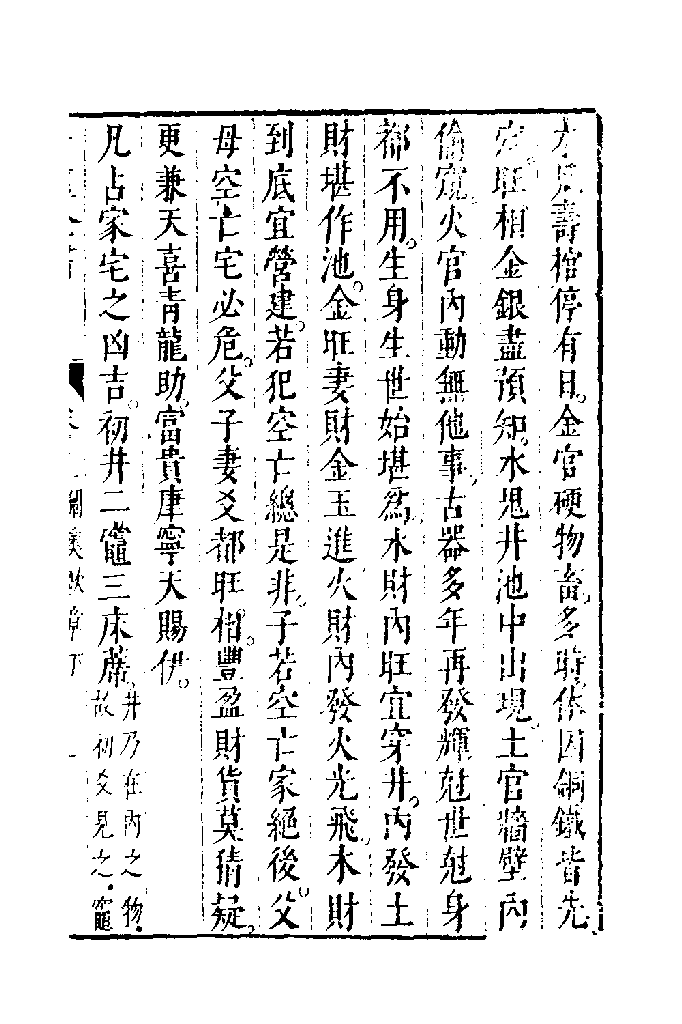 木鬼壽棺停有日。金官硬物畜多時。依因銅鐵皆先
定。旺相金銀盡預知。水鬼井池中出現。土官牆壁內
偷窺。火官內動無他事。古器多年再發輝。尅世尅身
都不用。生身生世始堪為。木財內旺宜穿井。內發土
財堪作池。金旺妻財金玉進。火財內發火光飛。木財
到底宜營建。若犯空亡總是非。子若空亡家絕後。父
母空亡宅必危。父子妻爻都旺相。豐盈財貨莫猜疑。
更兼天喜靑龍助。富貴康寧天賜伊。
凡占家宅之凶吉。初井二竈三床蓆。井乃在內之物。
故初爻見之。竈